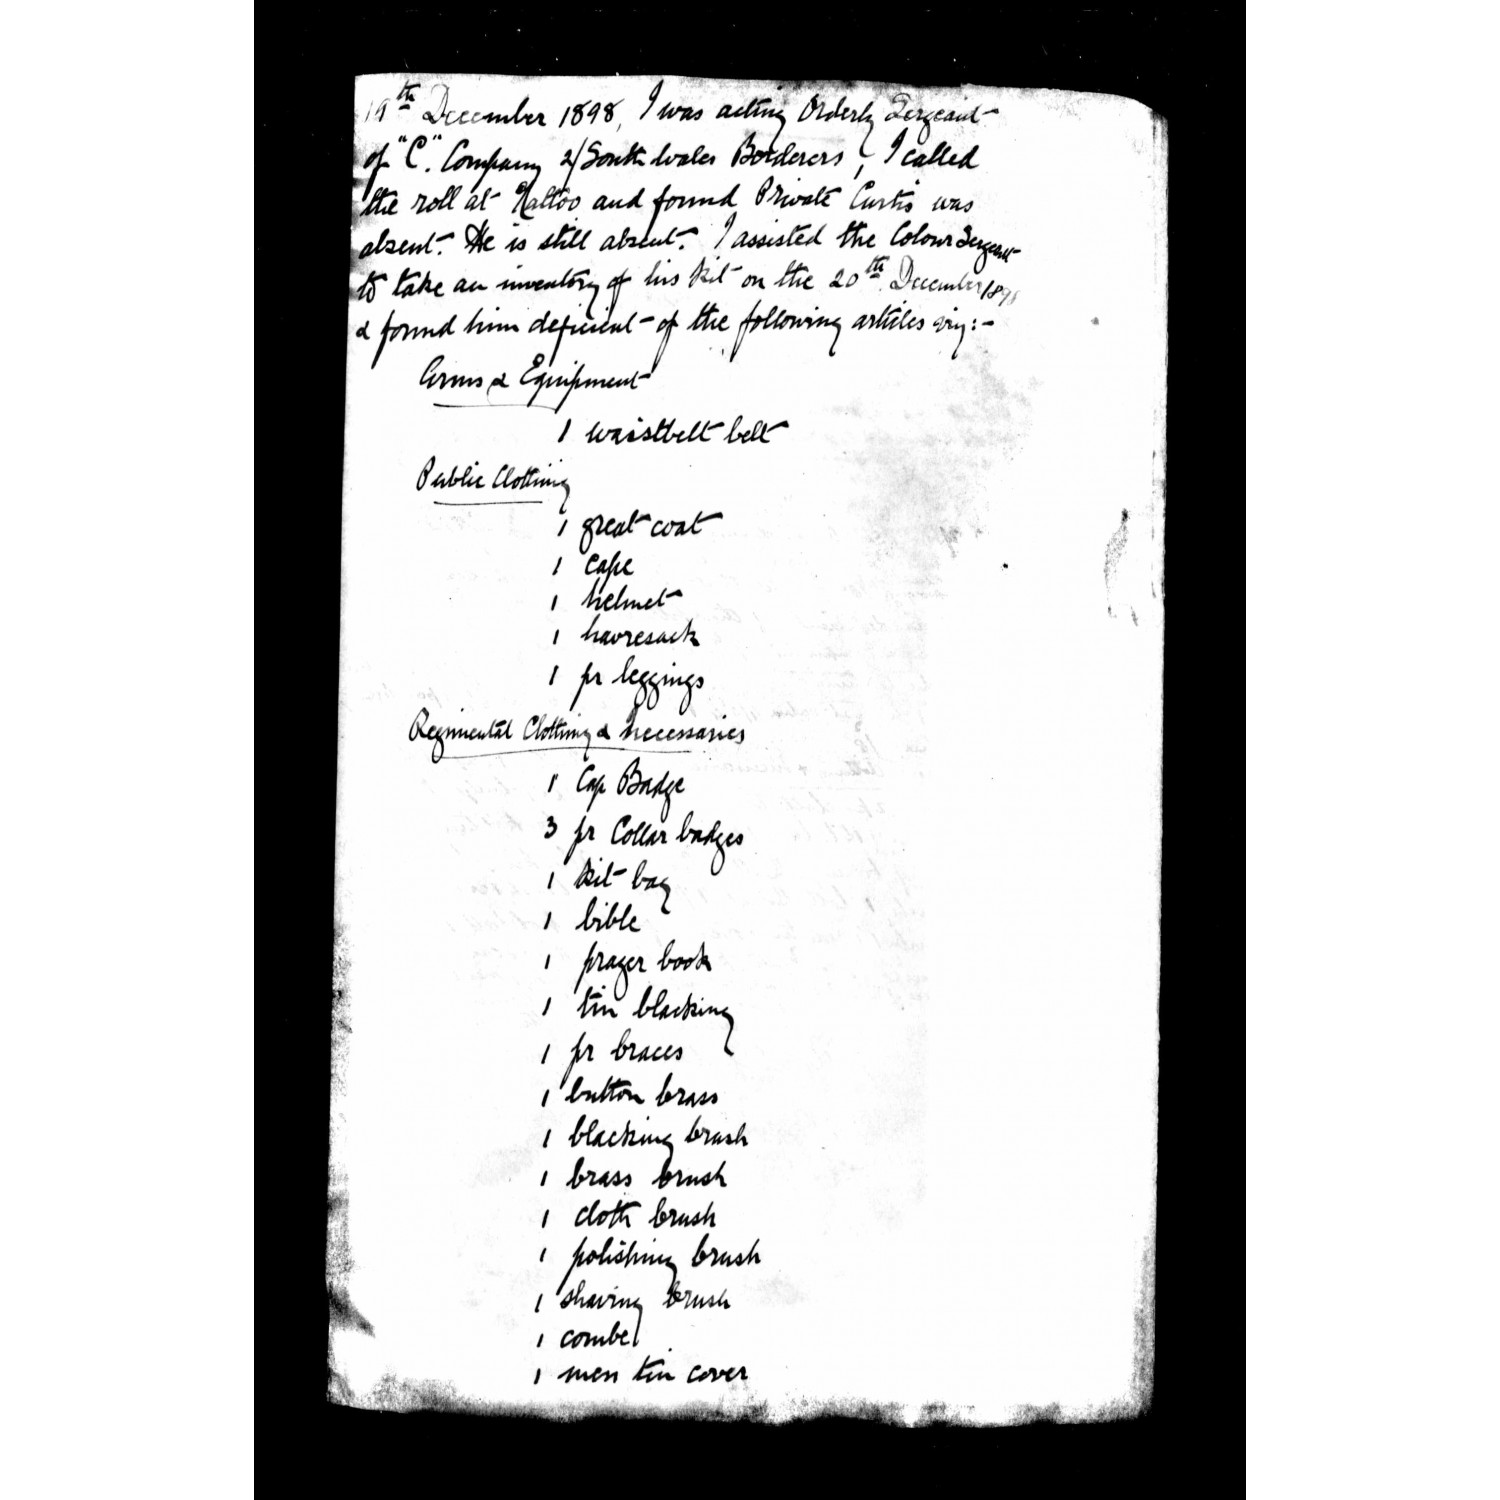 19th December 1898, I was acting Orderly Sergeant
of "C". Company 2/South Wales Borderers, I called
the roll at Tattoo and found Private Curtis was
absent. He is still absent. I assisted the Colour Sergeant
to take an inventory of his kit on the 20th. December 1898
& found him deficient of the following articles viz:-
Arms & Equipment
1 waistbelt belt
Public Clothing
1 great coat
1 cape
1 helmet
1 havresack
1 pr leggings
Regimental Clothing & necessaries
1 Cap Badge
3 pr Collar badges
1 kit bag
1 bible
1 prayer book
1 tin blacking
1 pr braces
1 button brass
1 blacking brush
1 brass brush
1 cloth brush
1 polishing brush
1 shaving brush
1 combe
1 mess tin cover